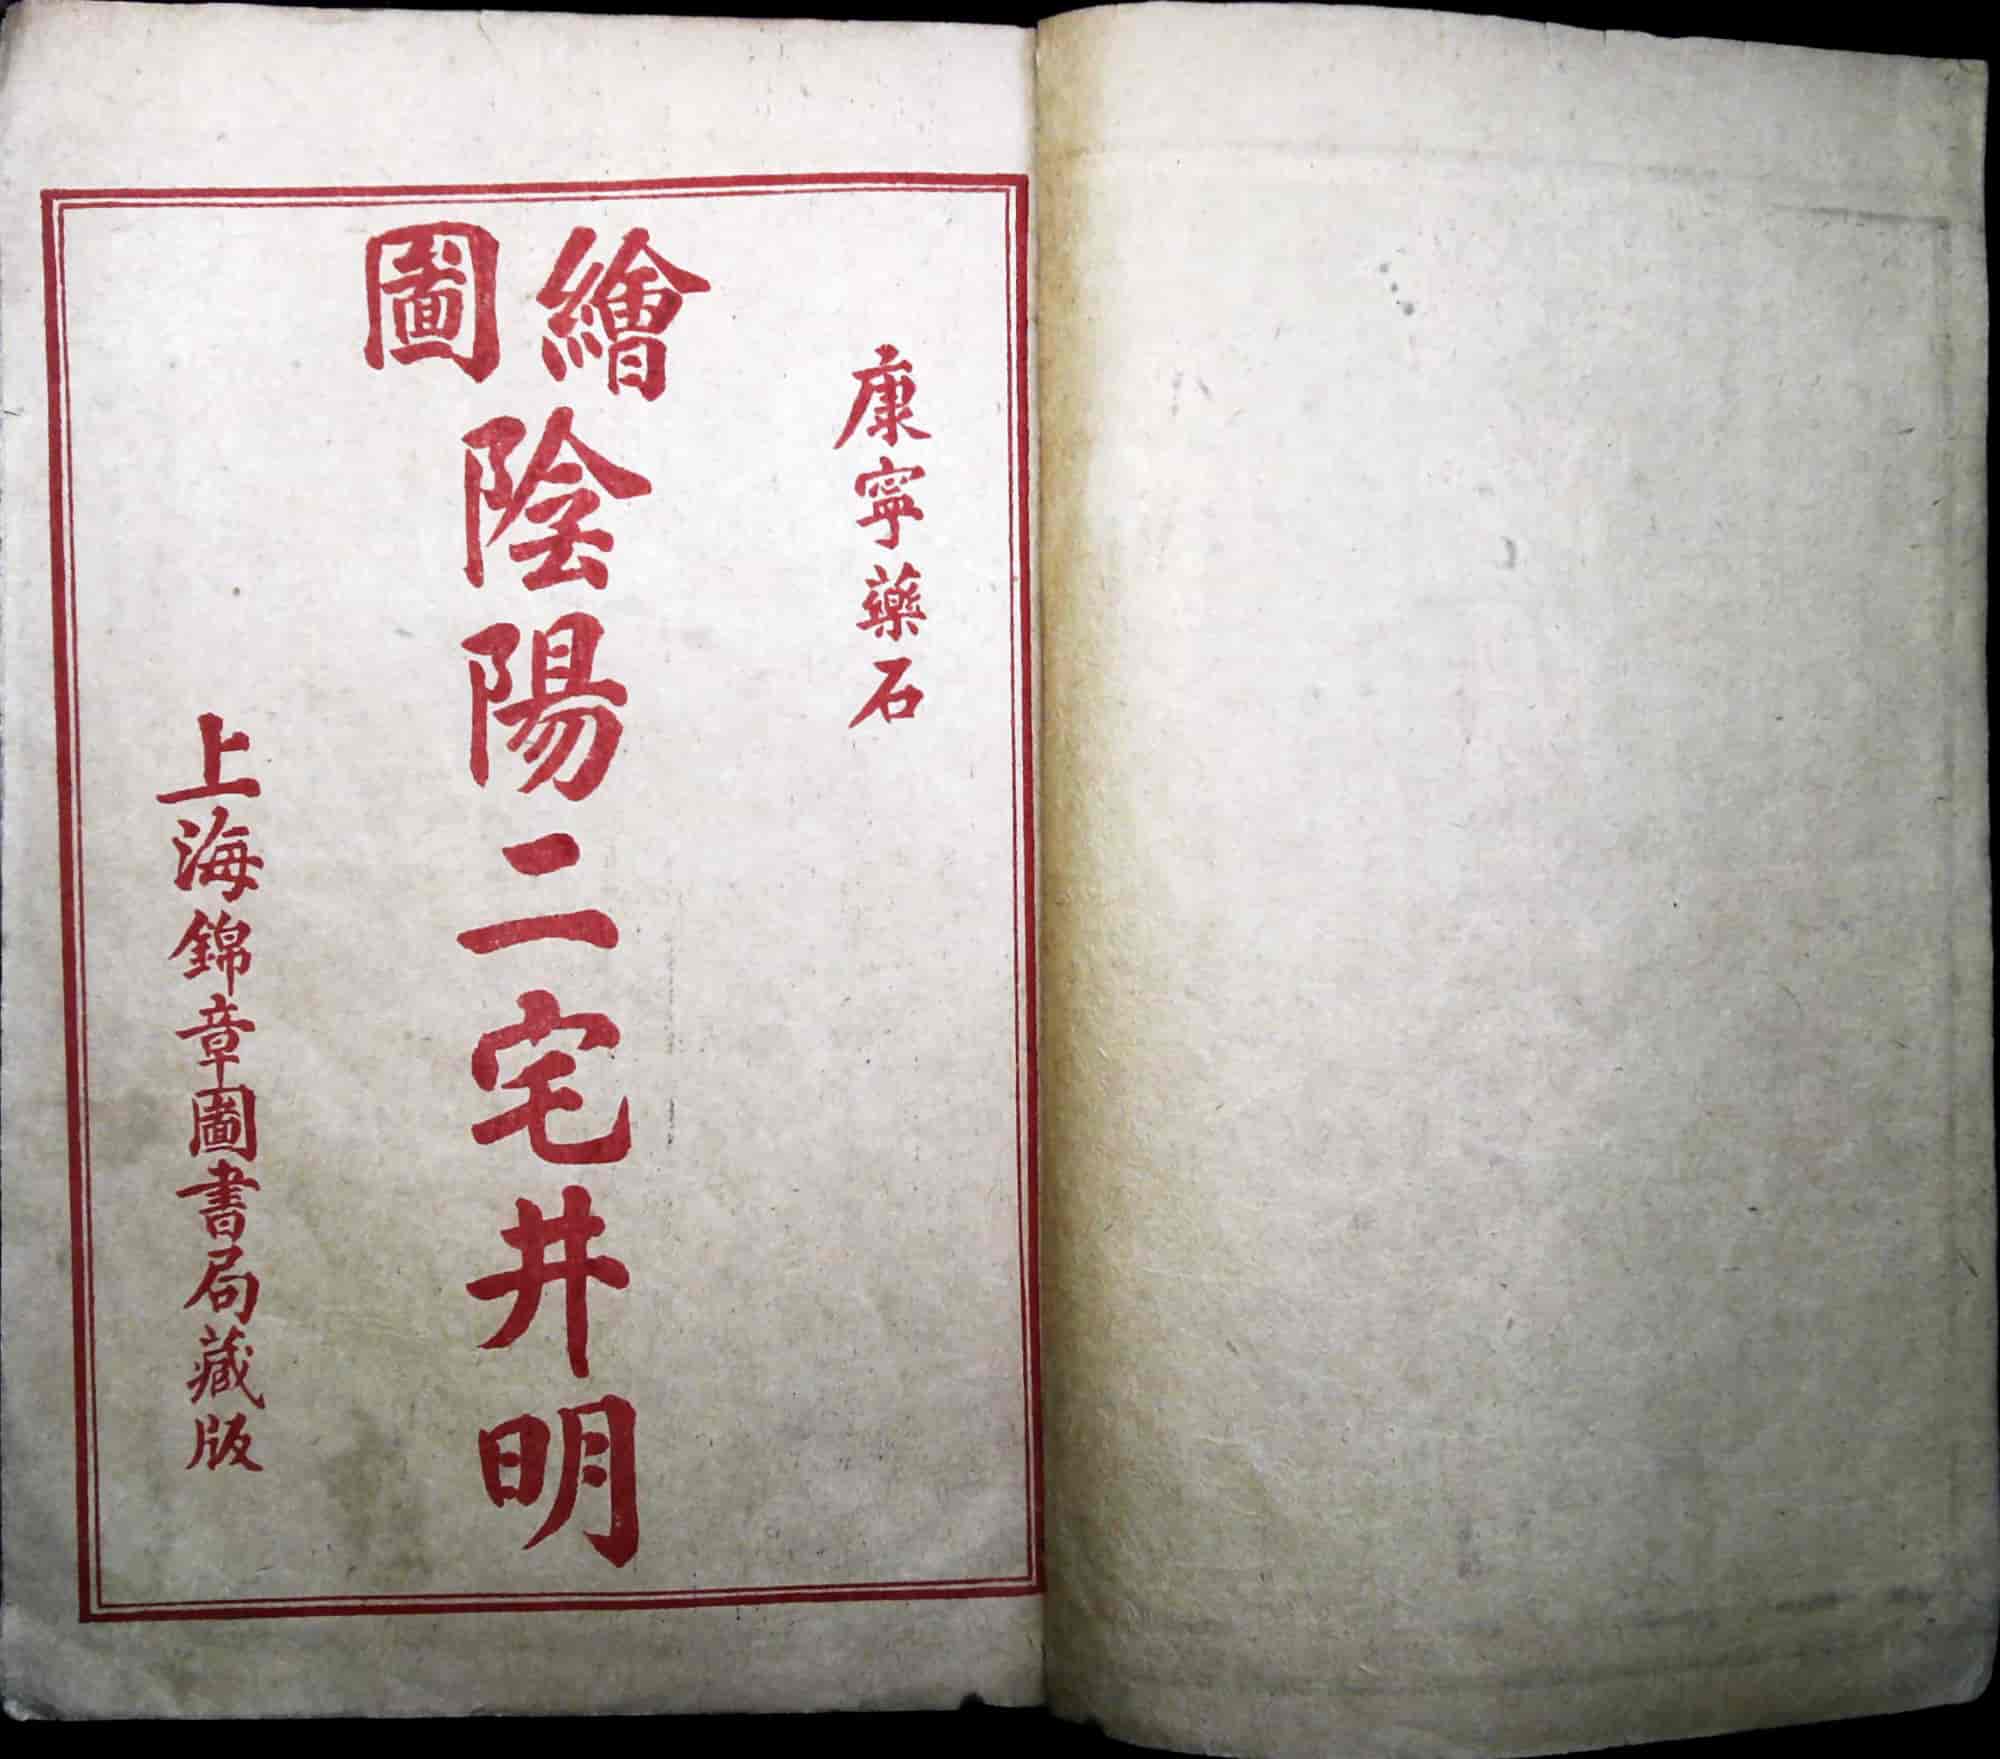 康寧藥石
繪圖
陰陽二宅井明
上海錦章圖書局藏版